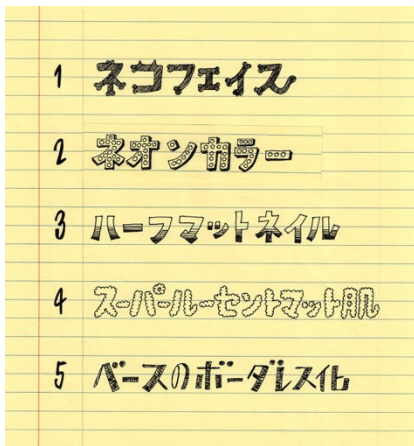 1 ネコフェイス
2 ネオンカラー
3 ハーフマットネイル
4 スーパールーセントマット肌
5 ベースのボーダレス化